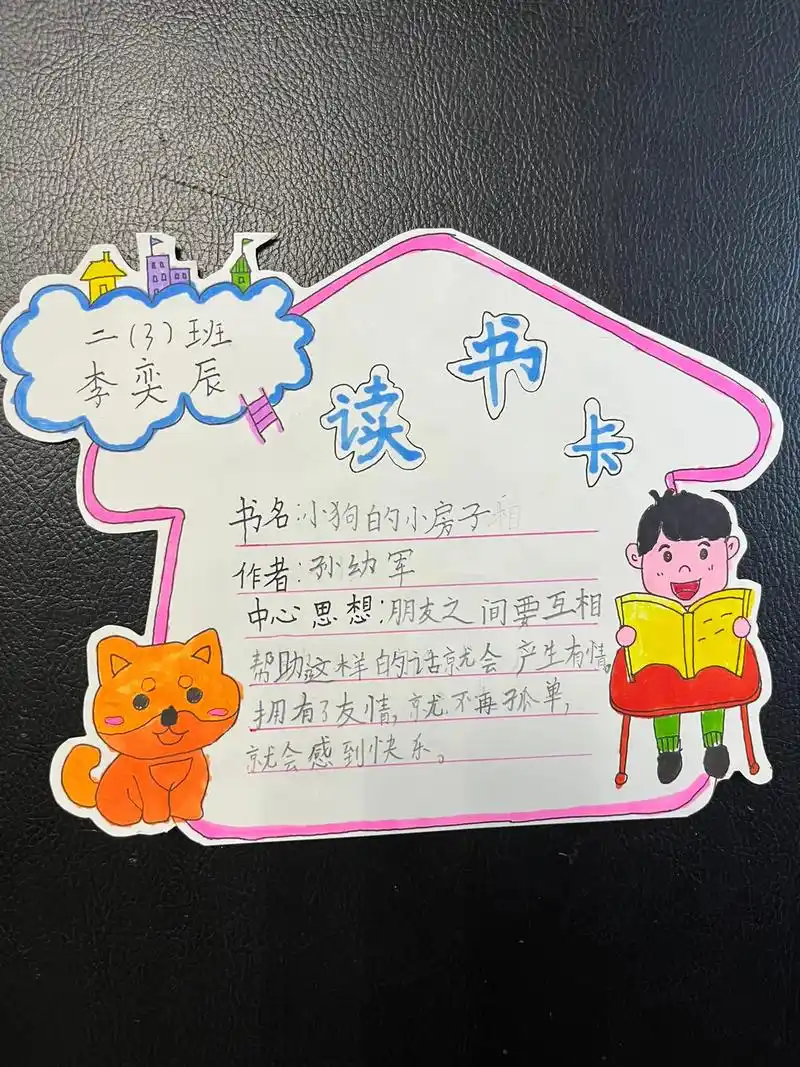 二(3)班
李奕辰
读书卡
书名:小狗的小房子
作者:孙幼军
中心思想:朋友之间要互相
帮助,这样的话就会产生有情。
拥有了友情,就不再孤单,
就会感到快乐。